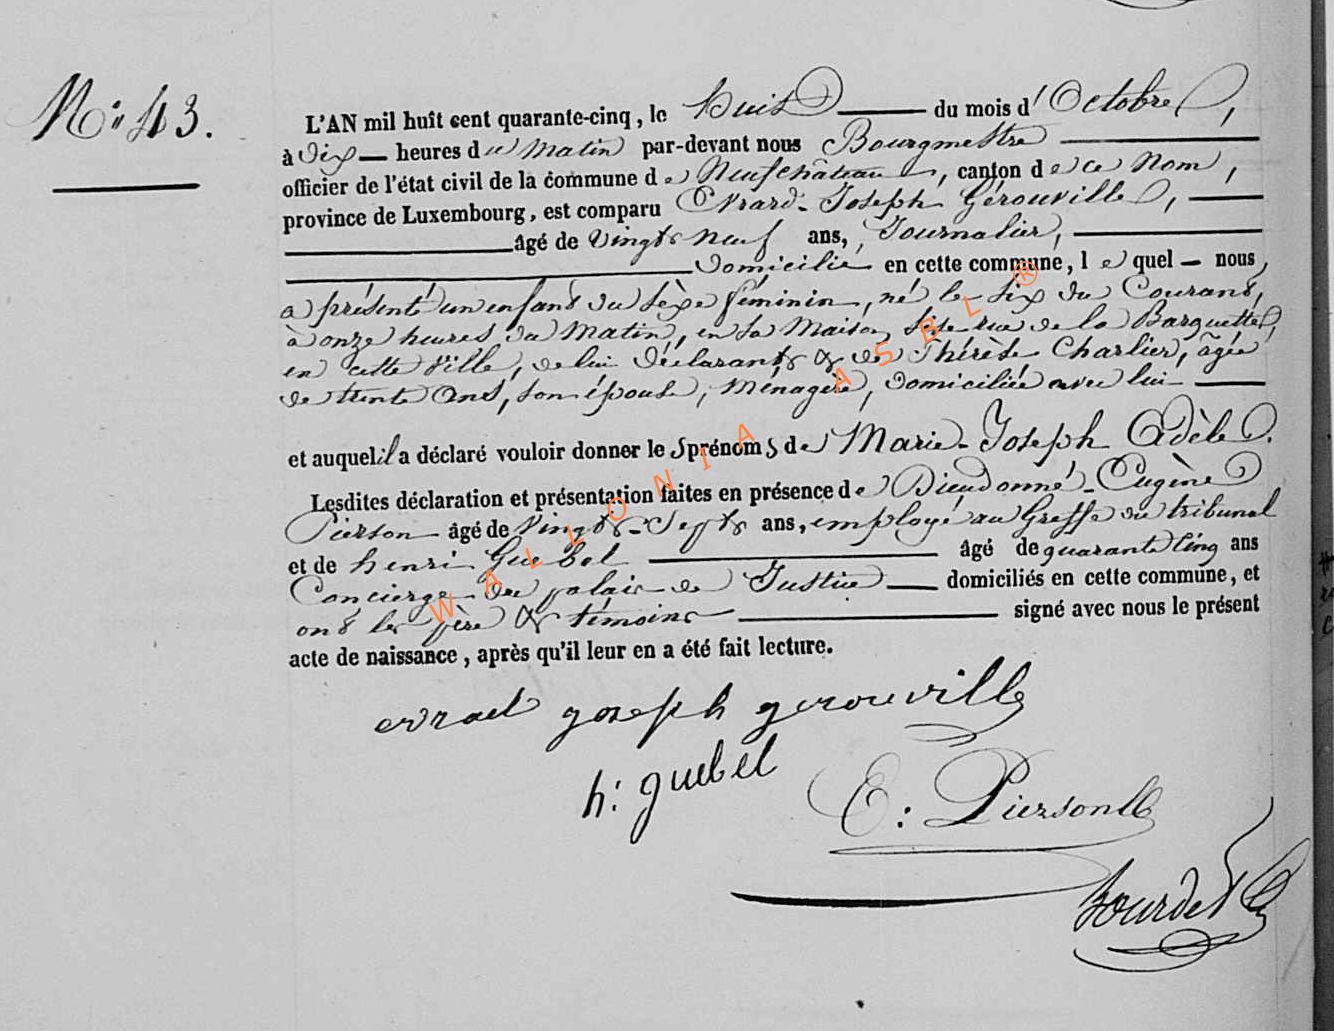 N.º 43.
L'AN mil huit cent quarante-cinq, le huit du mois d'Octobre,
à dix heures du matin par-devant nous Bourgmestre
officier de l'état civil de la commune de Neufchâteau, canton de ce nom,
province de Luxembourg, est comparu Evrard-Joseph Gérouville,
âgé de vingt neuf ans, Journalier,
domicilié en cette commune, lequel nous
a présenté un enfant du sèxe féminin, né le six du courant,
à onze heures du matin, en sa maison sise rue de la Barquette,
en cette ville, de lui déclarant & de Thérèse Charlier, âgée
de trente ans, son épouse, ménagère, domiciliée avec lui
et auquel il a déclaré vouloir donner les prénoms de Marie-Joseph Adèle.
Lesdites déclaration et présentation faites en présence de Dieudonné-Eugène
Pierson âgé de vingt-sept ans, employé au Greffe du tribunal
et de henri Guebel âgé de quarante cinq ans
Concierge du palais de Justice domiciliés en cette commune, et
ont les père & témoins signé avec nous le présent
acte de naissance, après qu'il leur en a été fait lecture.
evrad joseph gerouville
h: guebel
E: Pierson
Bourdet
WALLONIA ASBL ®